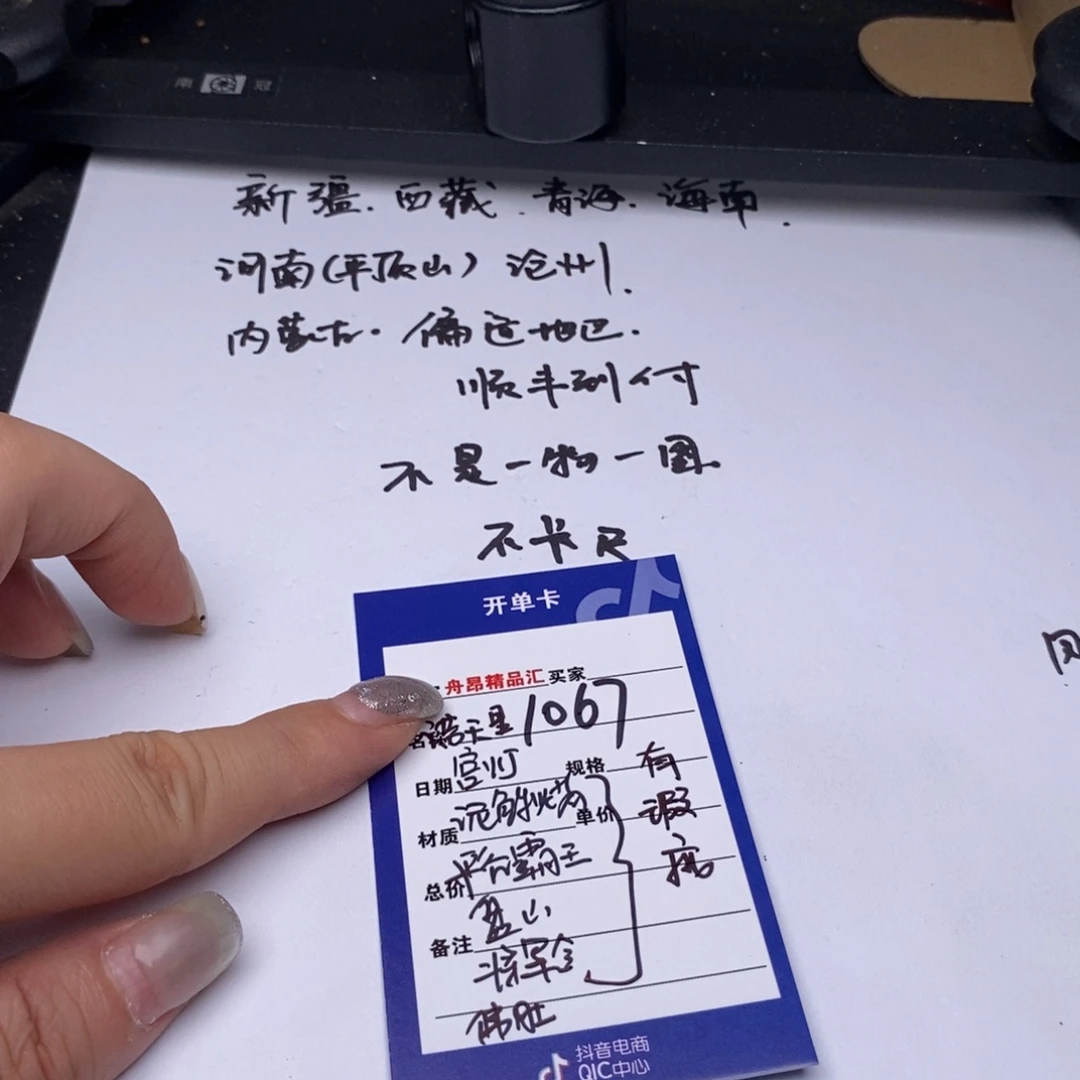 南 冠
新疆.西藏.青海.海南.
河南(平顶山)沧州.
内蒙古.偏远地区.
顺丰到付
不是一物一图.
不卡尺
风
开单卡
舟昂精品汇 买家
1067
日期 官灯 规格 有
材质 单价 瑕
总价 霸王 疵
备注 盘山
将军令
佛肚
抖音电商
QIC中心